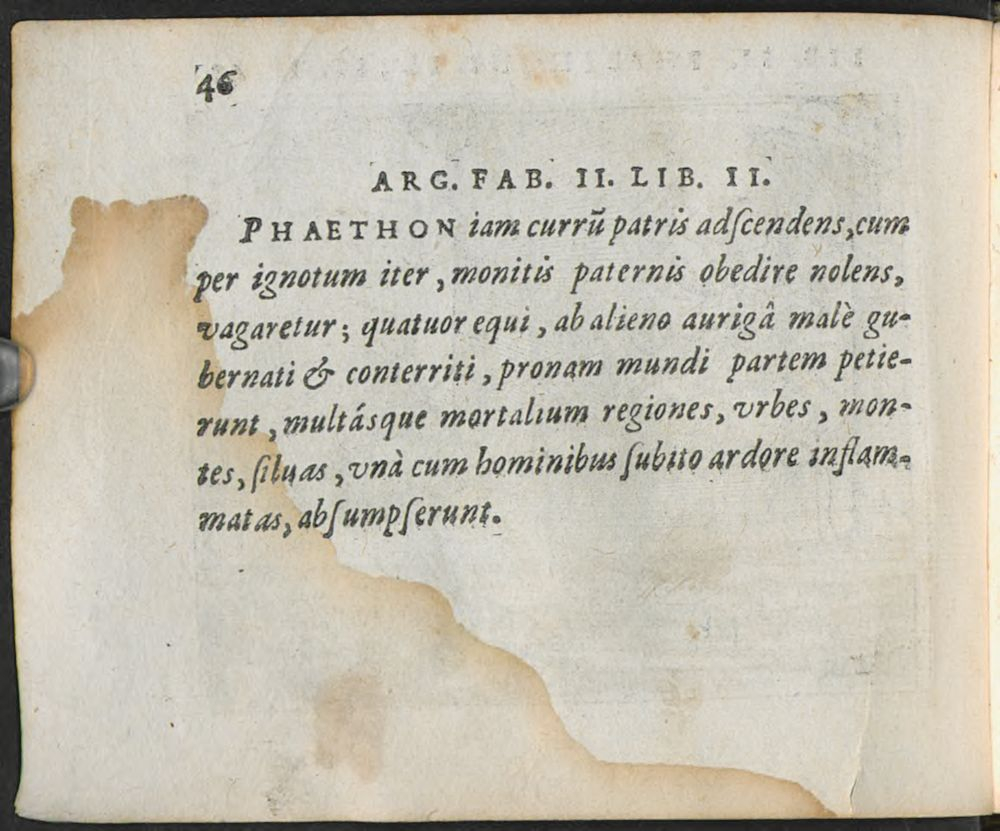 46
ARG. FAB. II. LIB. II.
PHAETHON iam currū patris adſcendens, cum
per ignotum iter, monitis paternis obedire nolens,
vagaretur; quatuor equi, ab alieno aurigâ malè gu-
bernati & conterriti, pronam mundi partem petie-
runt, multásque mortalium regiones, vrbes, mon-
tes, ſiluas, vnà cum hominibus ſubito ardore inflam-
matas, abſumpſerunt.